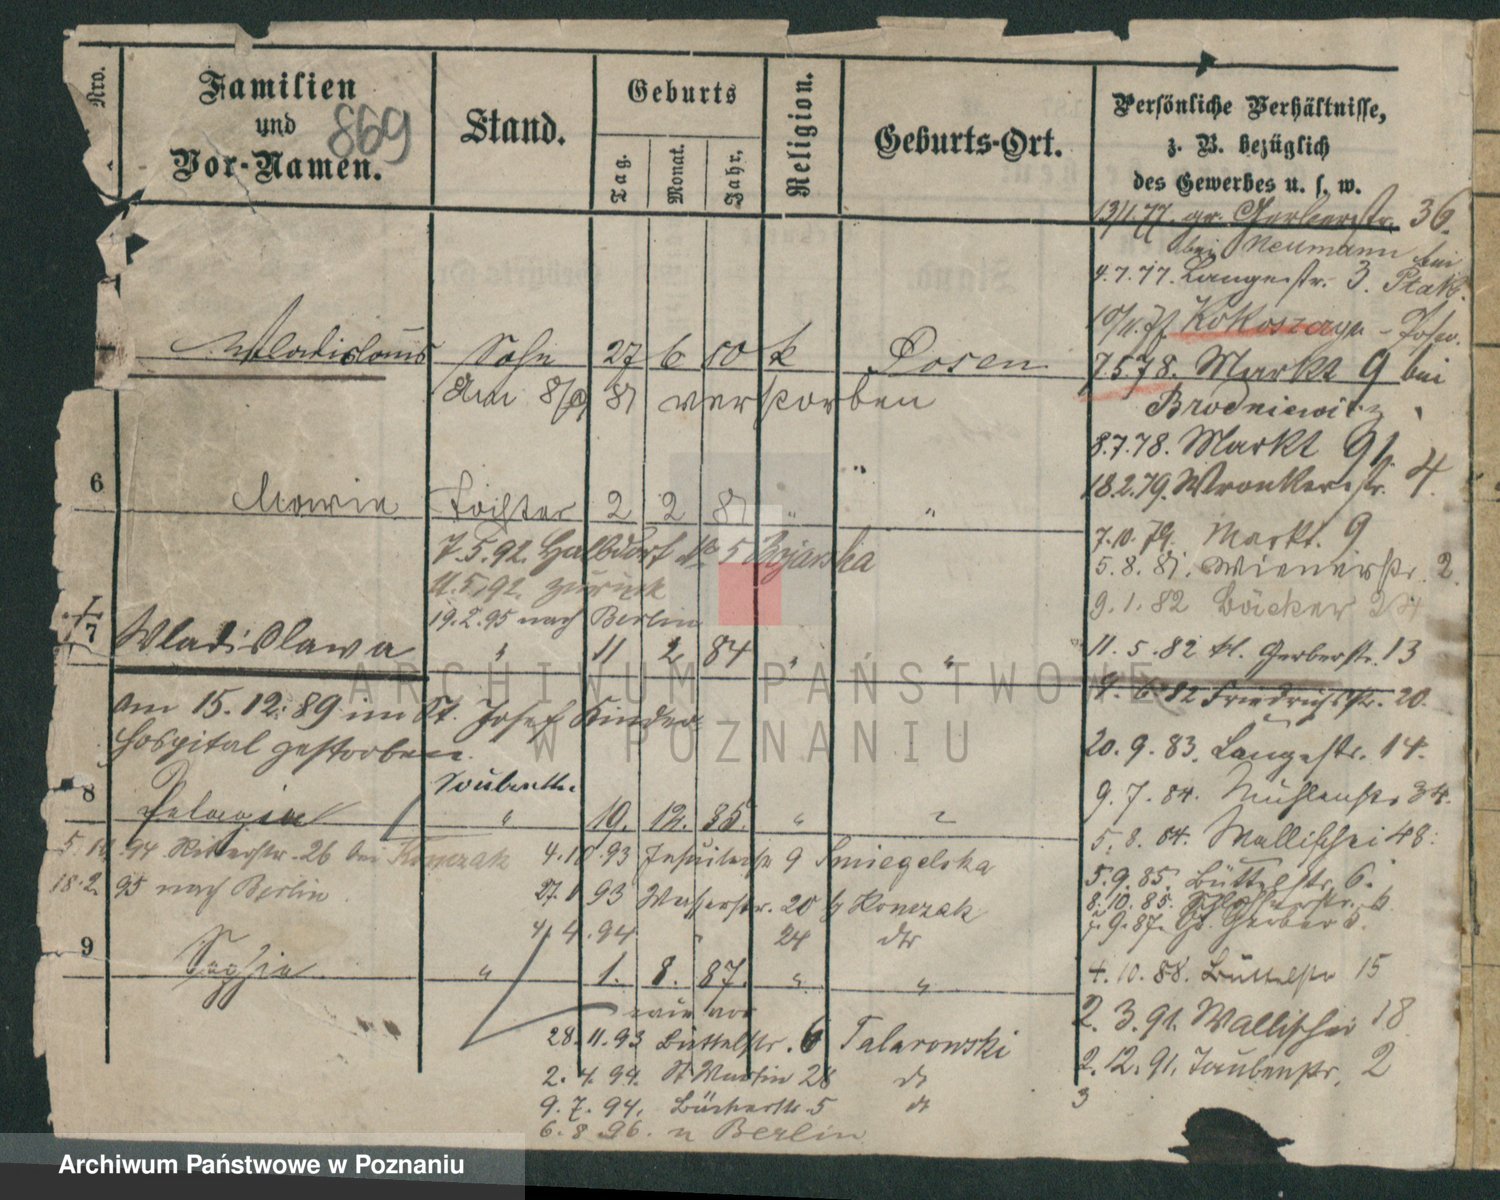 Nro.
Familien
und
Vor-Namen.
869
Stand.
Geburts
Tag.
Monat.
Jahr.
Religion.
Geburts-Ort.
Persönliche Verhältnisse,
z. B. bezüglich
des Gewerbes u. s. w.
13/1.77. gr. Gerberstr. 36.
bei Neumann bei
4.7.77. Langestr. 3. Ptak.
Kokoszczyn
Wladislaus Sohn 27 6 80 k Posen
7.5.78. Markt 9 bei
am 81 verstorben
Brodniewicz
8.7.78. Markt 91
18.2.79. Wronkerstr. 4.
6
Maria Tochter 2 2 81 " "
7.5.92. Halbdorf 5 Bojarska
7.10.79. Markt. 9
5.8.81. Wienerstr. 2.
11.5.92 zurück
9.1.82 Bäcker
19.2.95 nach Berlin
7
Wladislawa " 11 2 84 " "
11.5.82 kl. Gerberstr. 13
82 Friedrichstr. 20.
am 15.12.89 im St. Josef Kinder
hospital gestorben.
20.9.83. Langestr. 14.
8
Pelagia " 19. 12. 85. " "
9.7.84. Mühlenstr. 34.
5.8.84. Wallischei 48.
94 Ritterstr. 26 bei Konczak
4.10.93 Jesuitenstr 9 Smiegelska
5.9.85. Büttelstr. 6.
18.2.95 nach Berlin.
93 Wasserstr. 20 Konczak
8.10.85. Schlosserstr. 6
9.87. Gr. Gerber
4.4.94 " 24 dto
9
Sophia " 1. 8. 87. " "
4.10.88. Büttelstr 15
2.3.91. Wallischei 18
28.11.93 Büttelstr. 6 Talarowski
2.12.91. Taubenstr. 2
2.4.94. St Martin 28 dt
9.7.94. 5 dt
3
6.8.96. n Berlin
ARCHIWUM PAŃSTWOWE
W POZNANIU
Archiwum Państwowe w Poznaniu